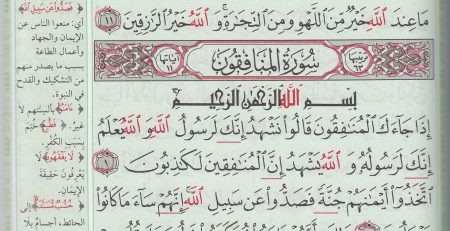 مَا عِندَ ٱللَّهِ خَيْرٌ مِّنَ ٱللَّهْوِ وَمِنَ ٱلتِّجَٰرَةِ ۚ وَٱللَّهُ خَيْرُ ٱلرَّٰزِقِينَ ١١
ترتيبها ٦٣
سُورَةُ المُنَافِقُونَ
آياتها ١١
بِسْمِ ٱللَّهِ ٱلرَّحْمَٰنِ ٱلرَّحِيمِ
إِذَا جَآءَكَ ٱلْمُنَٰفِقُونَ قَالُوا۟ نَشْهَدُ إِنَّكَ لَرَسُولُ ٱللَّهِ ۗ وَٱللَّهُ يَعْلَمُ
إِنَّكَ لَرَسُولُهُۥ وَٱللَّهُ يَشْهَدُ إِنَّ ٱلْمُنَٰفِقِينَ لَكَٰذِبُونَ ١
ٱتَّخَذُوٓا۟ أَيْمَٰنَهُمْ جُنَّةً فَصَدُّوا۟ عَن سَبِيلِ ٱللَّهِ ۚ إِنَّهُمْ سَآءَ مَا كَانُوا۟
فَصَدُّوا عَن سَبِيلِ اللَّهِ
أي: منعوا الناس عن
الإيمان والجهاد
وأعمال الطاعة
بسبب ما يصدر منهم
من التشكيك والقدح
في النبوة.
بألسنتهم لا
غير.
خُتِمَ
بسبب الكفر.
لَا يَفْقَهُونَ لا
يعرفون حقيقة
الإيمان.
إلى
الحائط، أجسام بلا